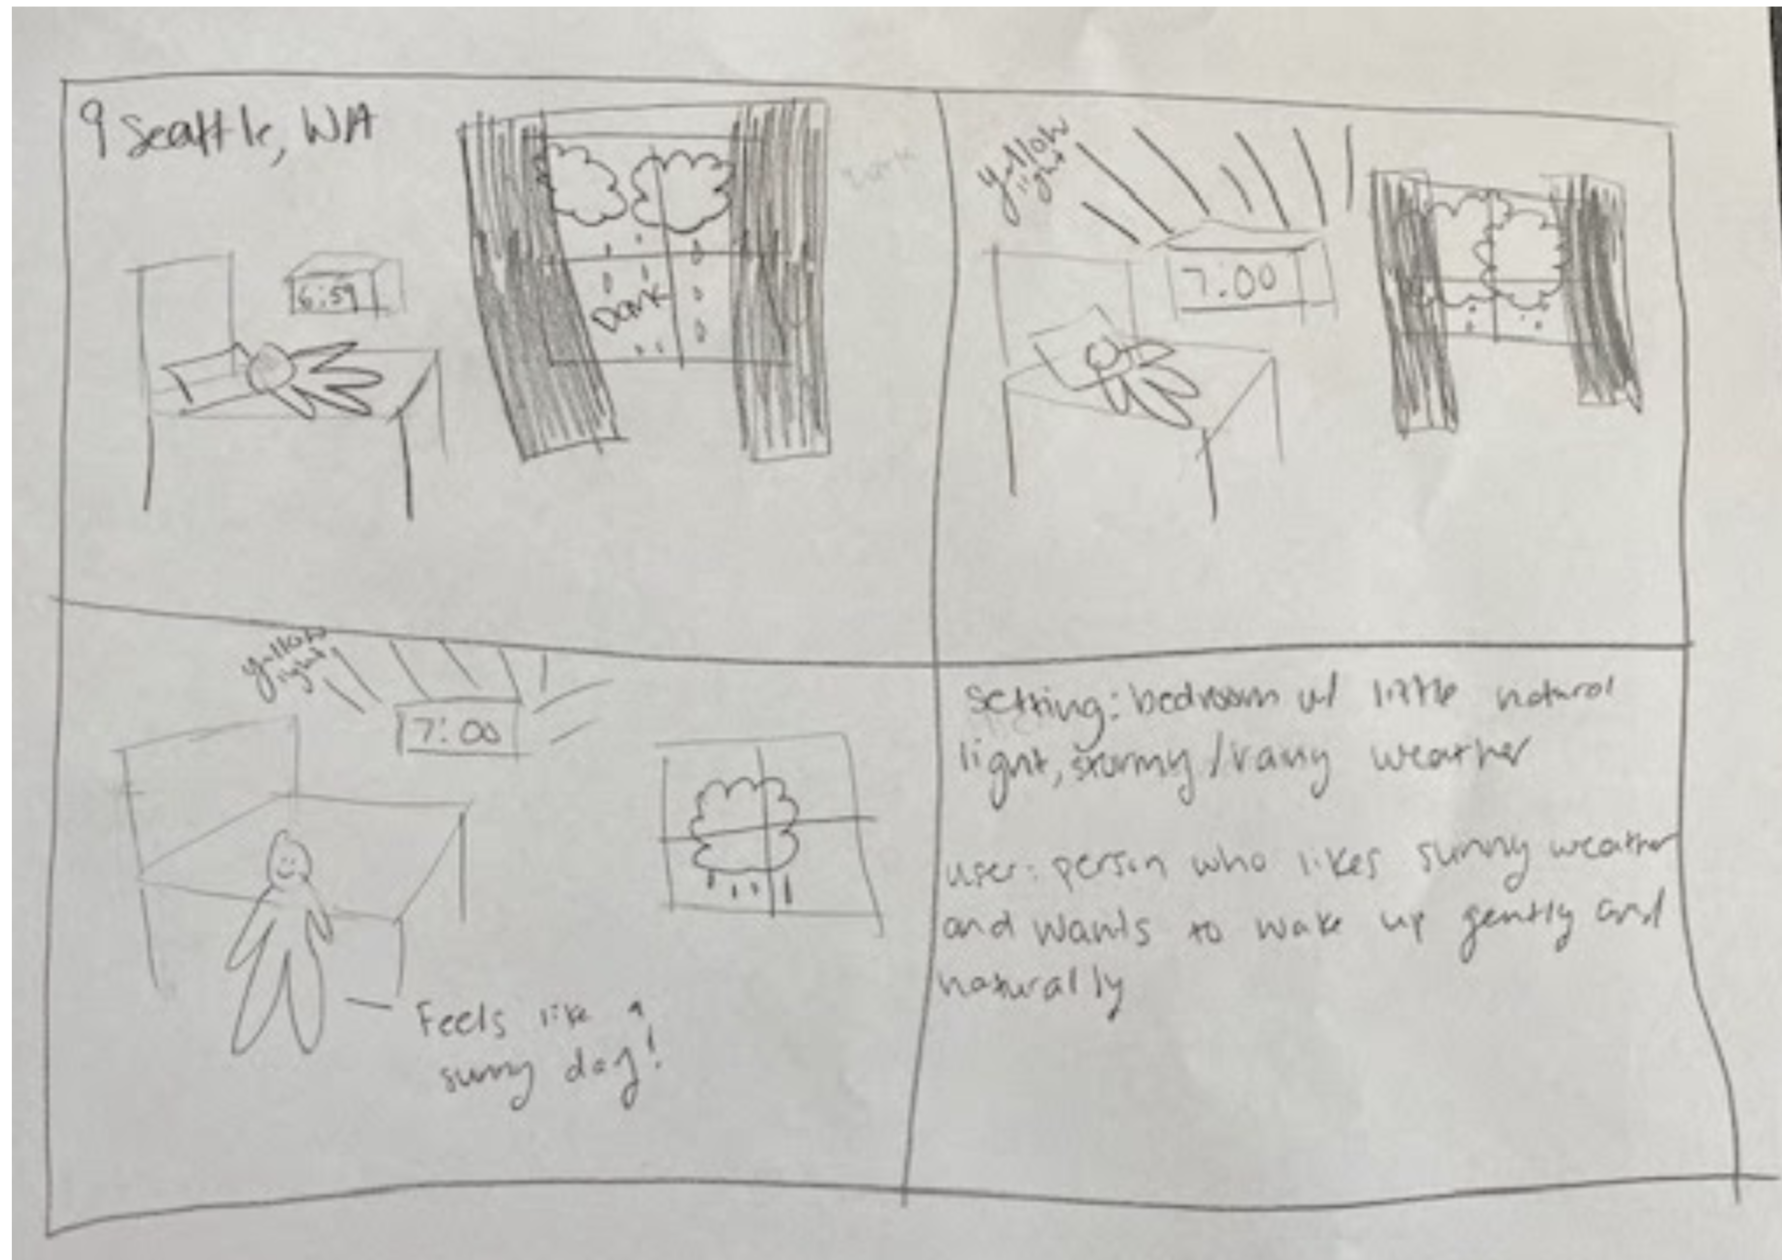 Seattle, WA
6:59
Dark
yellow
light
7:00
yellow
light
7:00
Feels like a
sunny day!
Setting: bedroom w/ little natural
light, stormy/rainy weather
user: person who likes sunny weather
and wants to wake up gently and
naturally